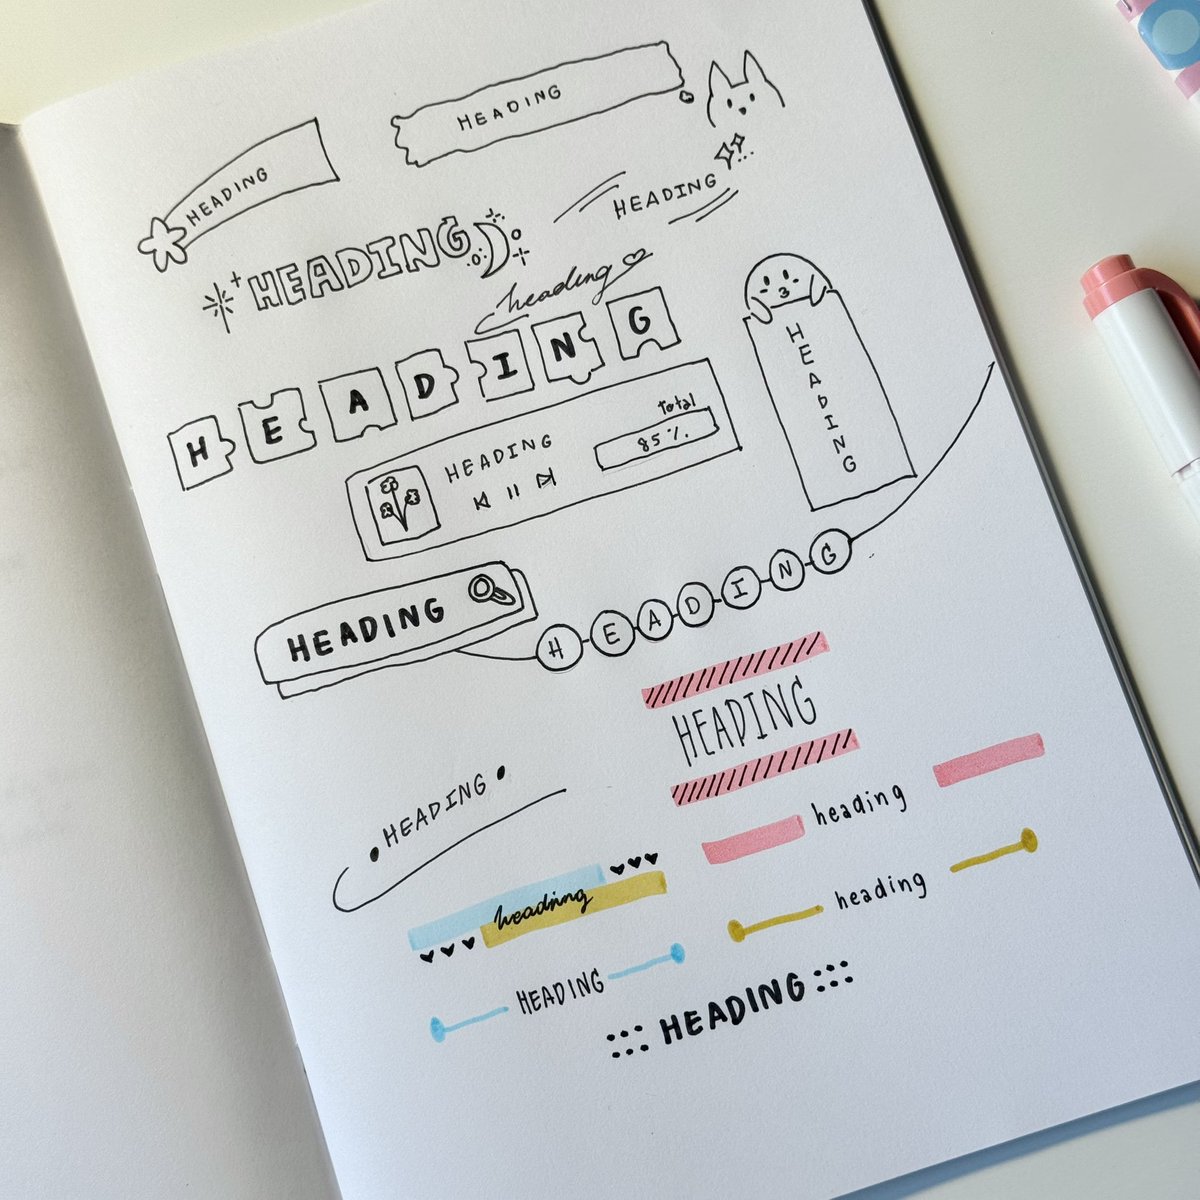 HEADING
HEADING
HEADING
HEADING
heading
HEADING
HEADING
Total
HEADING
85%.
HEADING
HEADING
HEADING
HEADING
heading
heading
heading
HEADING
HEADING